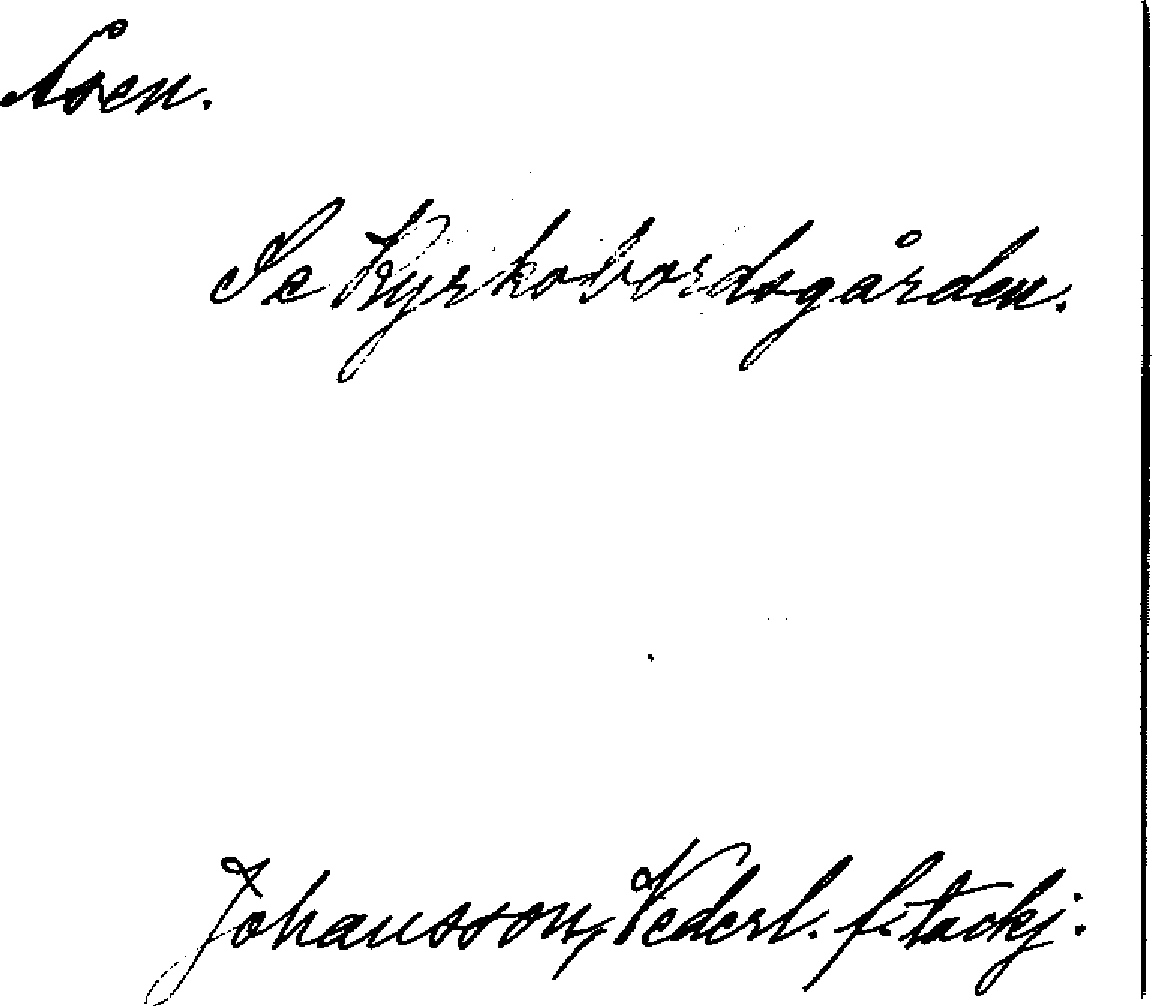 Åsen.
Se Kyrkobordsgården.
Johansson, Vederl. f. tackj.